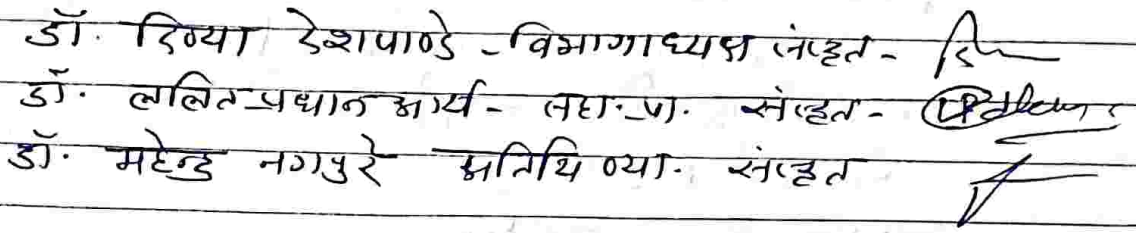 डॉ. दिव्या देशपाण्डे - विभागाध्यक्ष संस्कृत -
डॉ. ललित प्रधान आर्य - सहा. प्रा. संस्कृत -
डॉ. महेन्द्र नगपुरे अतिथि व्या. संस्कृत